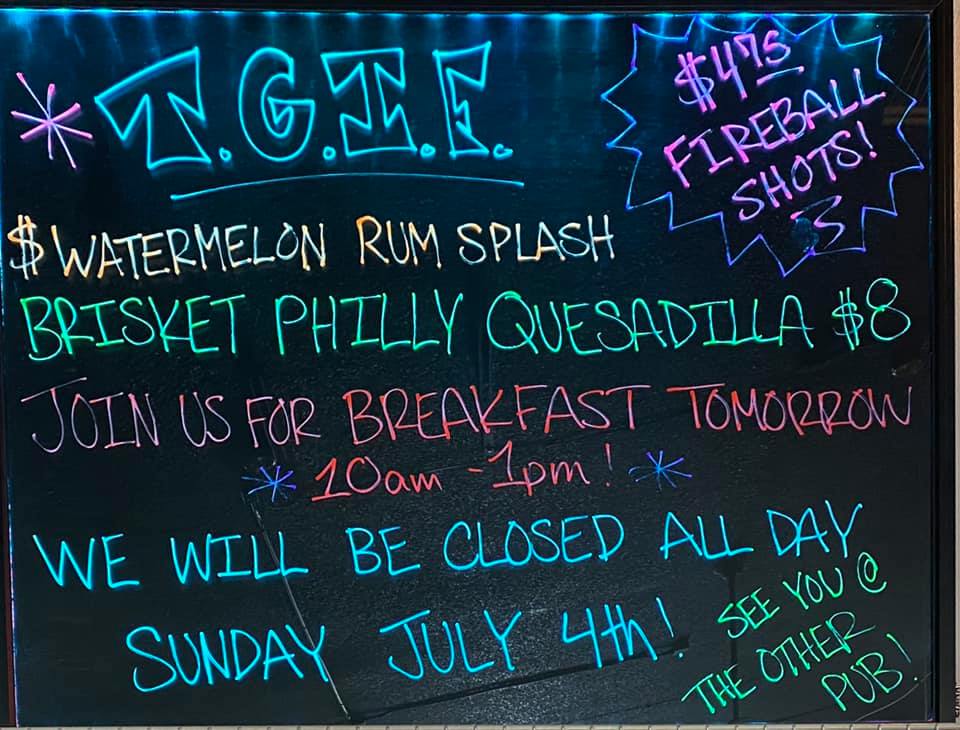 * T.G.I.F.
$4.75
FIREBALL
SHOTS!
$ WATERMELON RUM SPLASH
BRISKET PHILLY QUESADILLA $8
JOIN US FOR BREAKFAST TOMORROW
* 10am - 1pm! *
WE WILL BE CLOSED ALL DAY
SUNDAY JULY 4th!
SEE YOU @
THE OTHER
PUB!